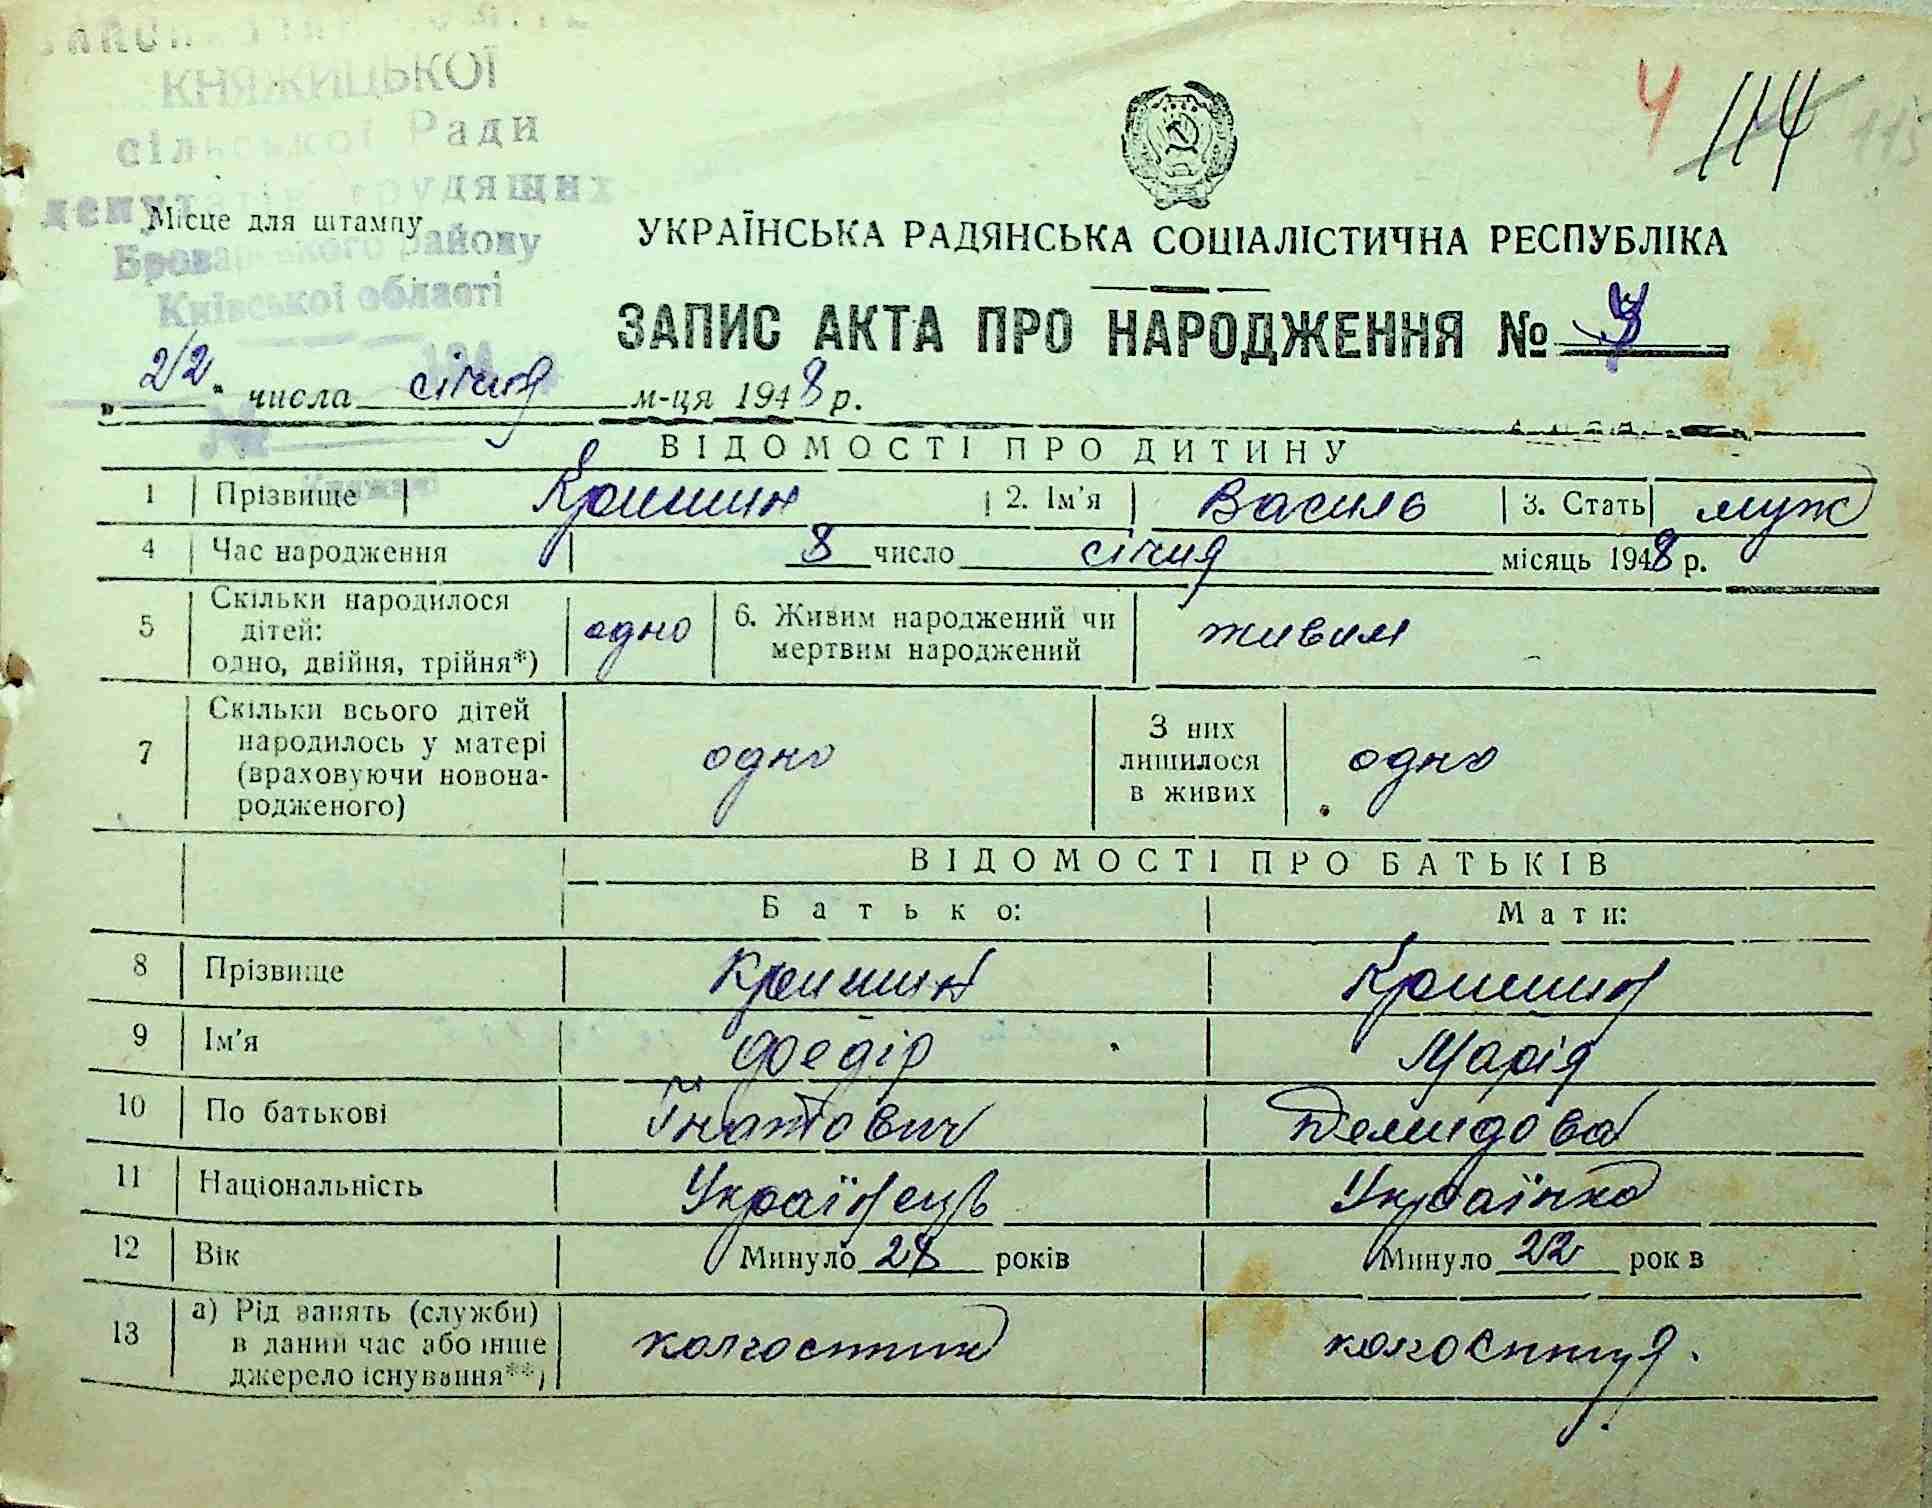 КНЯЖИЦЬКОЇ
сільської Ради
депутатів трудящих
Броварського району
Київської області
Місце для штампу
4 114 115
УКРАЇНСЬКА РАДЯНСЬКА СОЦІАЛІСТИЧНА РЕСПУБЛІКА
ЗАПИС АКТА ПРО НАРОДЖЕННЯ № 4
„22" числа січня м-ця 1948 р.
№
ВІДОМОСТІ ПРО ДИТИНУ
1 Прізвище Кришин 2. Ім'я Василь 3. Стать муж
4 Час народження 8 число січня місяць 1948 р.
5 Скільки народилося дітей: одно, двійня, трійня*) одно 6. Живим народжений чи мертвим народжений живим
7 Скільки всього дітей народилось у матері (враховуючи новонародженого) одно З них лишилося в живих одно
ВІДОМОСТІ ПРО БАТЬКІВ
Батько: Мати:
8 Прізвище Кришин Кришин
9 Ім'я Фоедір Марія
10 По батькові Ігнатович Демидова
11 Національність Українець Українка
12 Вік Минуло 28 років Минуло 22 рок в
13 а) Рід занять (служби) в даний час або інше джерело існування**) колгоспник колгоспниця.